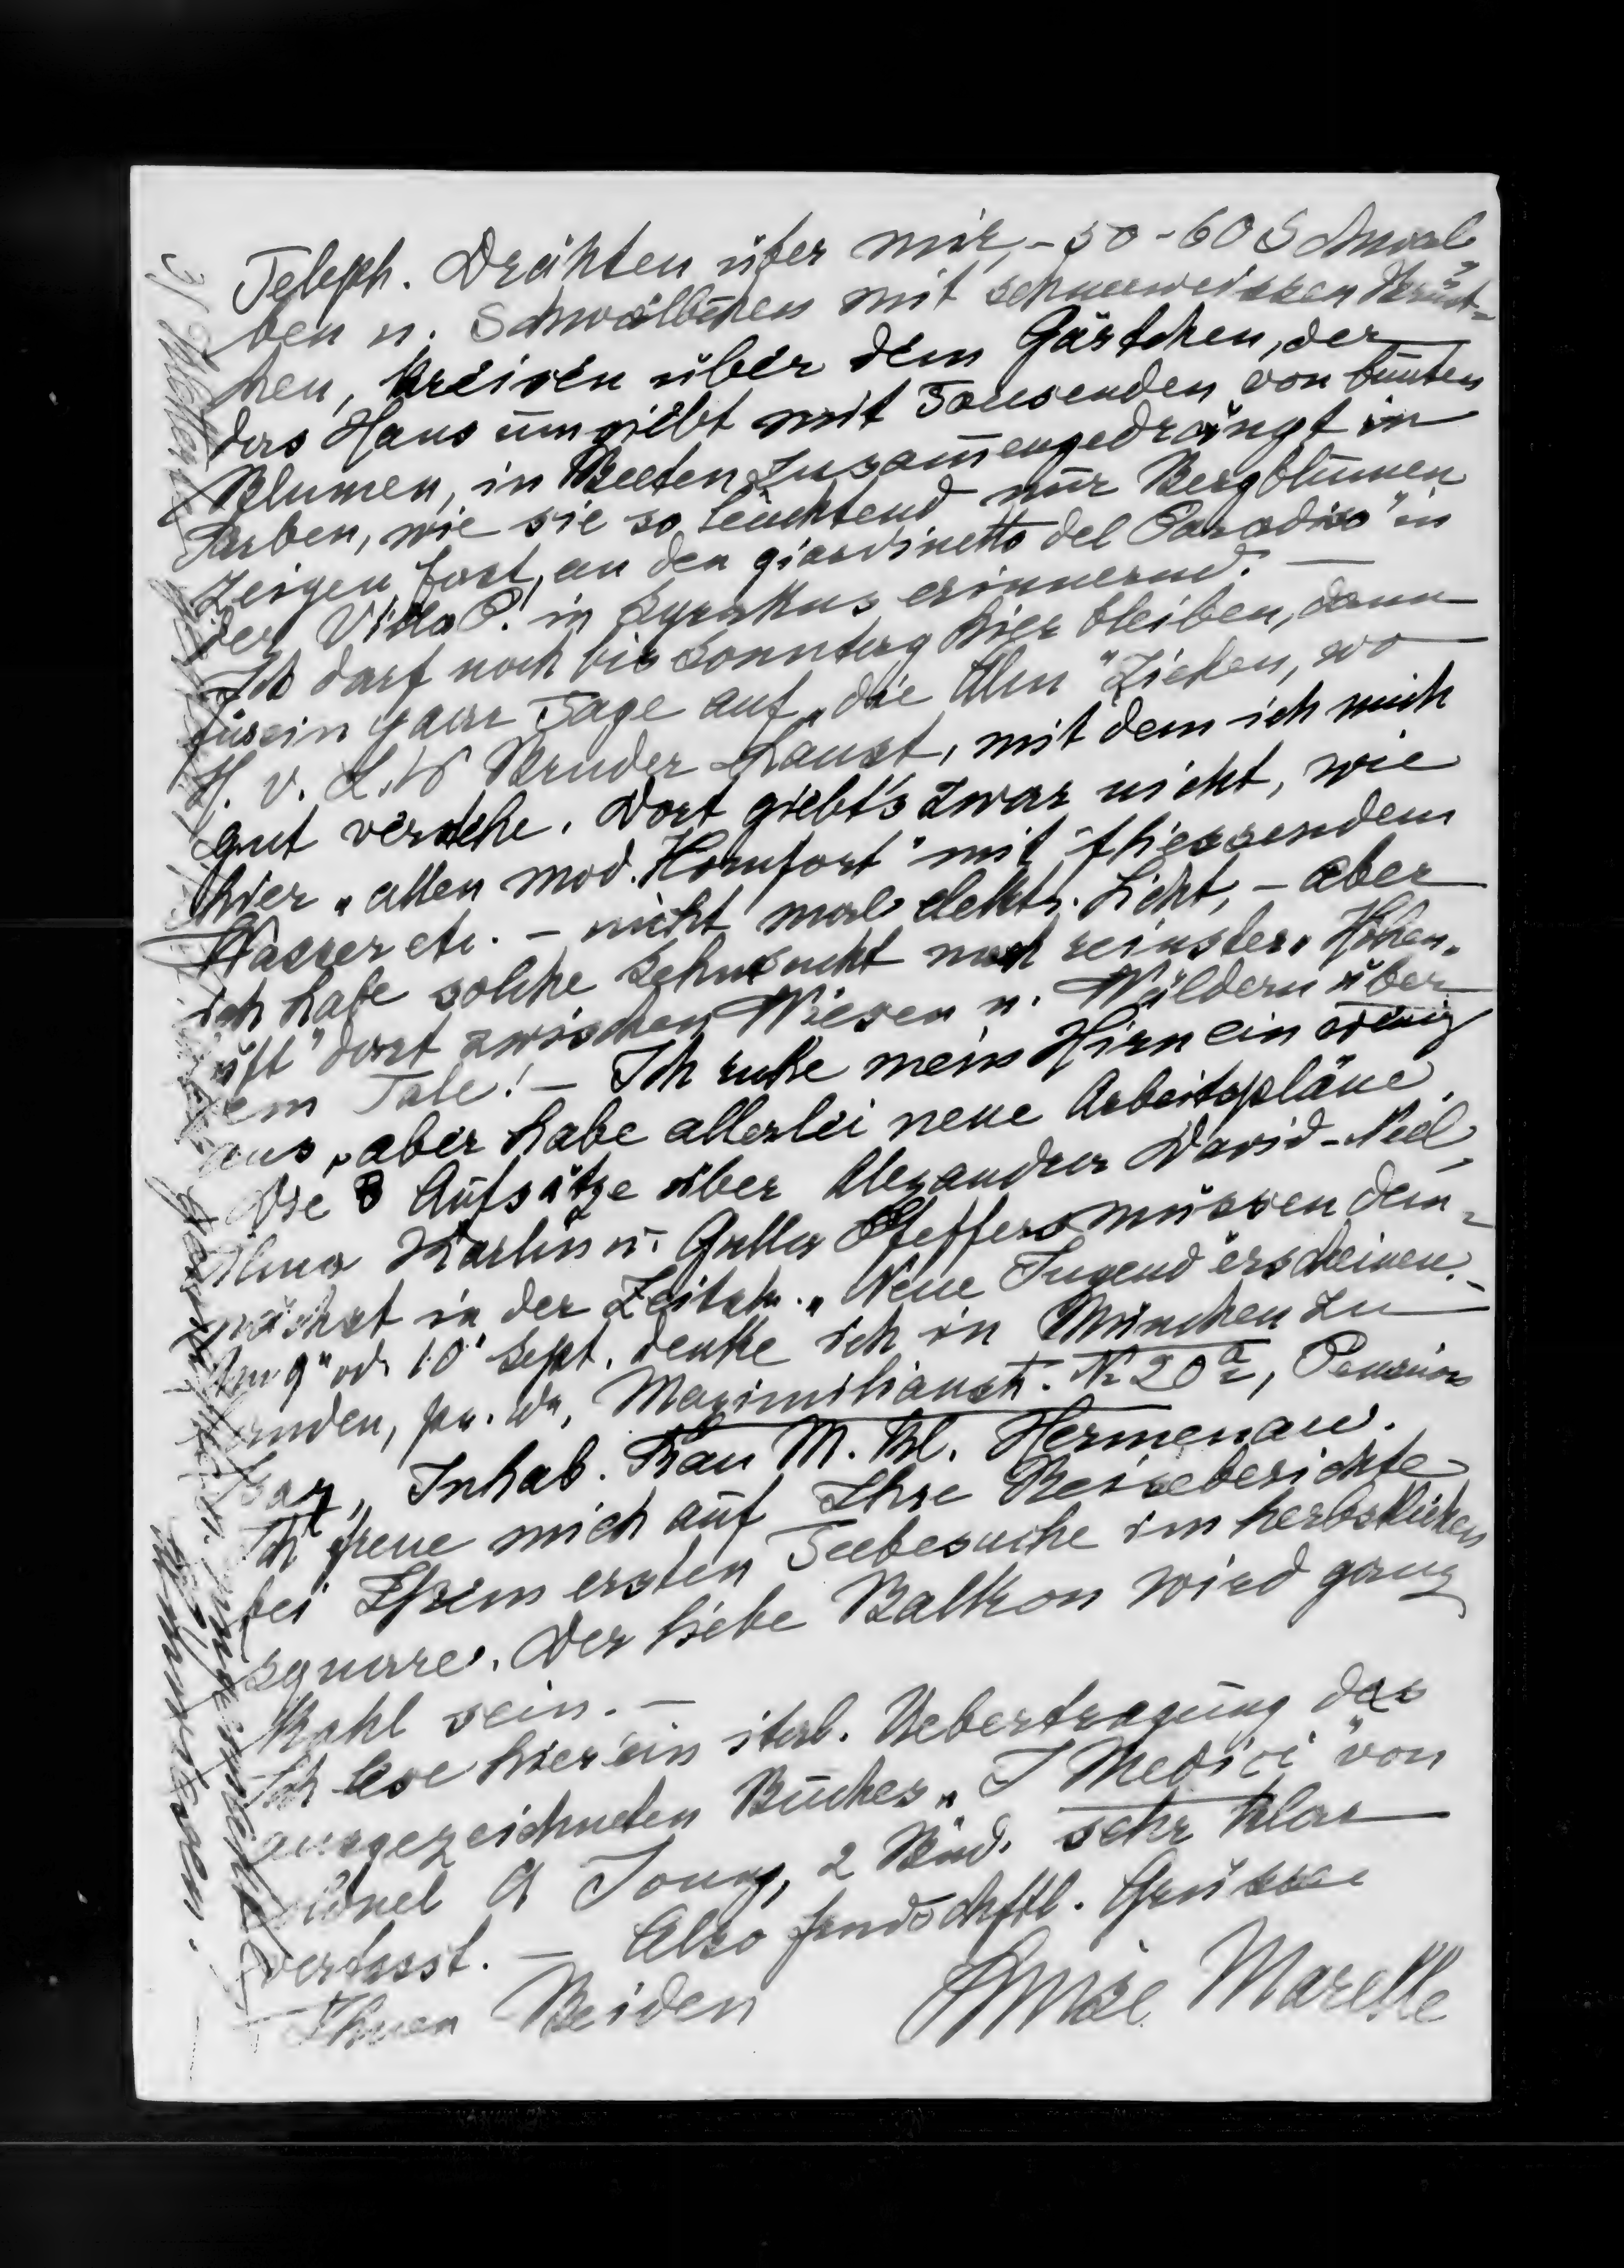 Teleph. Drähten über mir, - 50-60 Schwal-
ben u. Schwälbchen mit schneeweissen Brüst-
chen, kreisen über dem Gärtchen, der
das Haus umgiebt mit Tausenden von bunten
Blumen, in Beeten zusammengedrängt in
Farben, wie sie so leuchtend nur Bergblumen
zeigen, fast, an den giardinetto del Paradiso" in
der Villa P. in Syrakus erinnernd. —
Ich darf noch bis Sonntag hier bleiben, dann
für ein paar Tage auf „die Alm" ziehen, wo
H. v. L. W Bruder haust, mit dem ich mich
gut verstehe. Dort giebt's zwar nicht, wie
hier „allen mod. Komfort" mit fliessendem
Wasser etc. - nicht mal elektr. Licht, - aber
ich habe solche Sehnsucht nach reinster „Höhen-
luft" dort zwischen Wiesen u. Wäldern über
dem Tale! - Ich ruhe mein Hirn ein wenig
aus, aber habe allerlei neue Arbeitspläne.
Die 3 Aufsätze über Alexandra David-Neel,
Alma Karlin u. Pfeffer müssen dem-
nächst in der Zeitsch. „Neue Jugend" erscheinen. -
Am 9" od. 10" Sept. denke ich in München zu
landen, Maximilianstr. № 20a, Pension
Isar, Inhab. Frau M. Bl. Hermenau.
Ich freue mich auf Ihre Reiseberichte
bei Ihrem ersten Teebesuche im herbstlichen
square. Der liebe Balkon wird ganz
kahl sein. —
Ich lese hier ein ital. Uebertragung das
ausgezeichneten Buches „I Medici" von
Colonel G Young, 2 Bnd. sehr klar
verfasst. — Also frndschftl. Grüsse
Ihnen Beiden Marelle